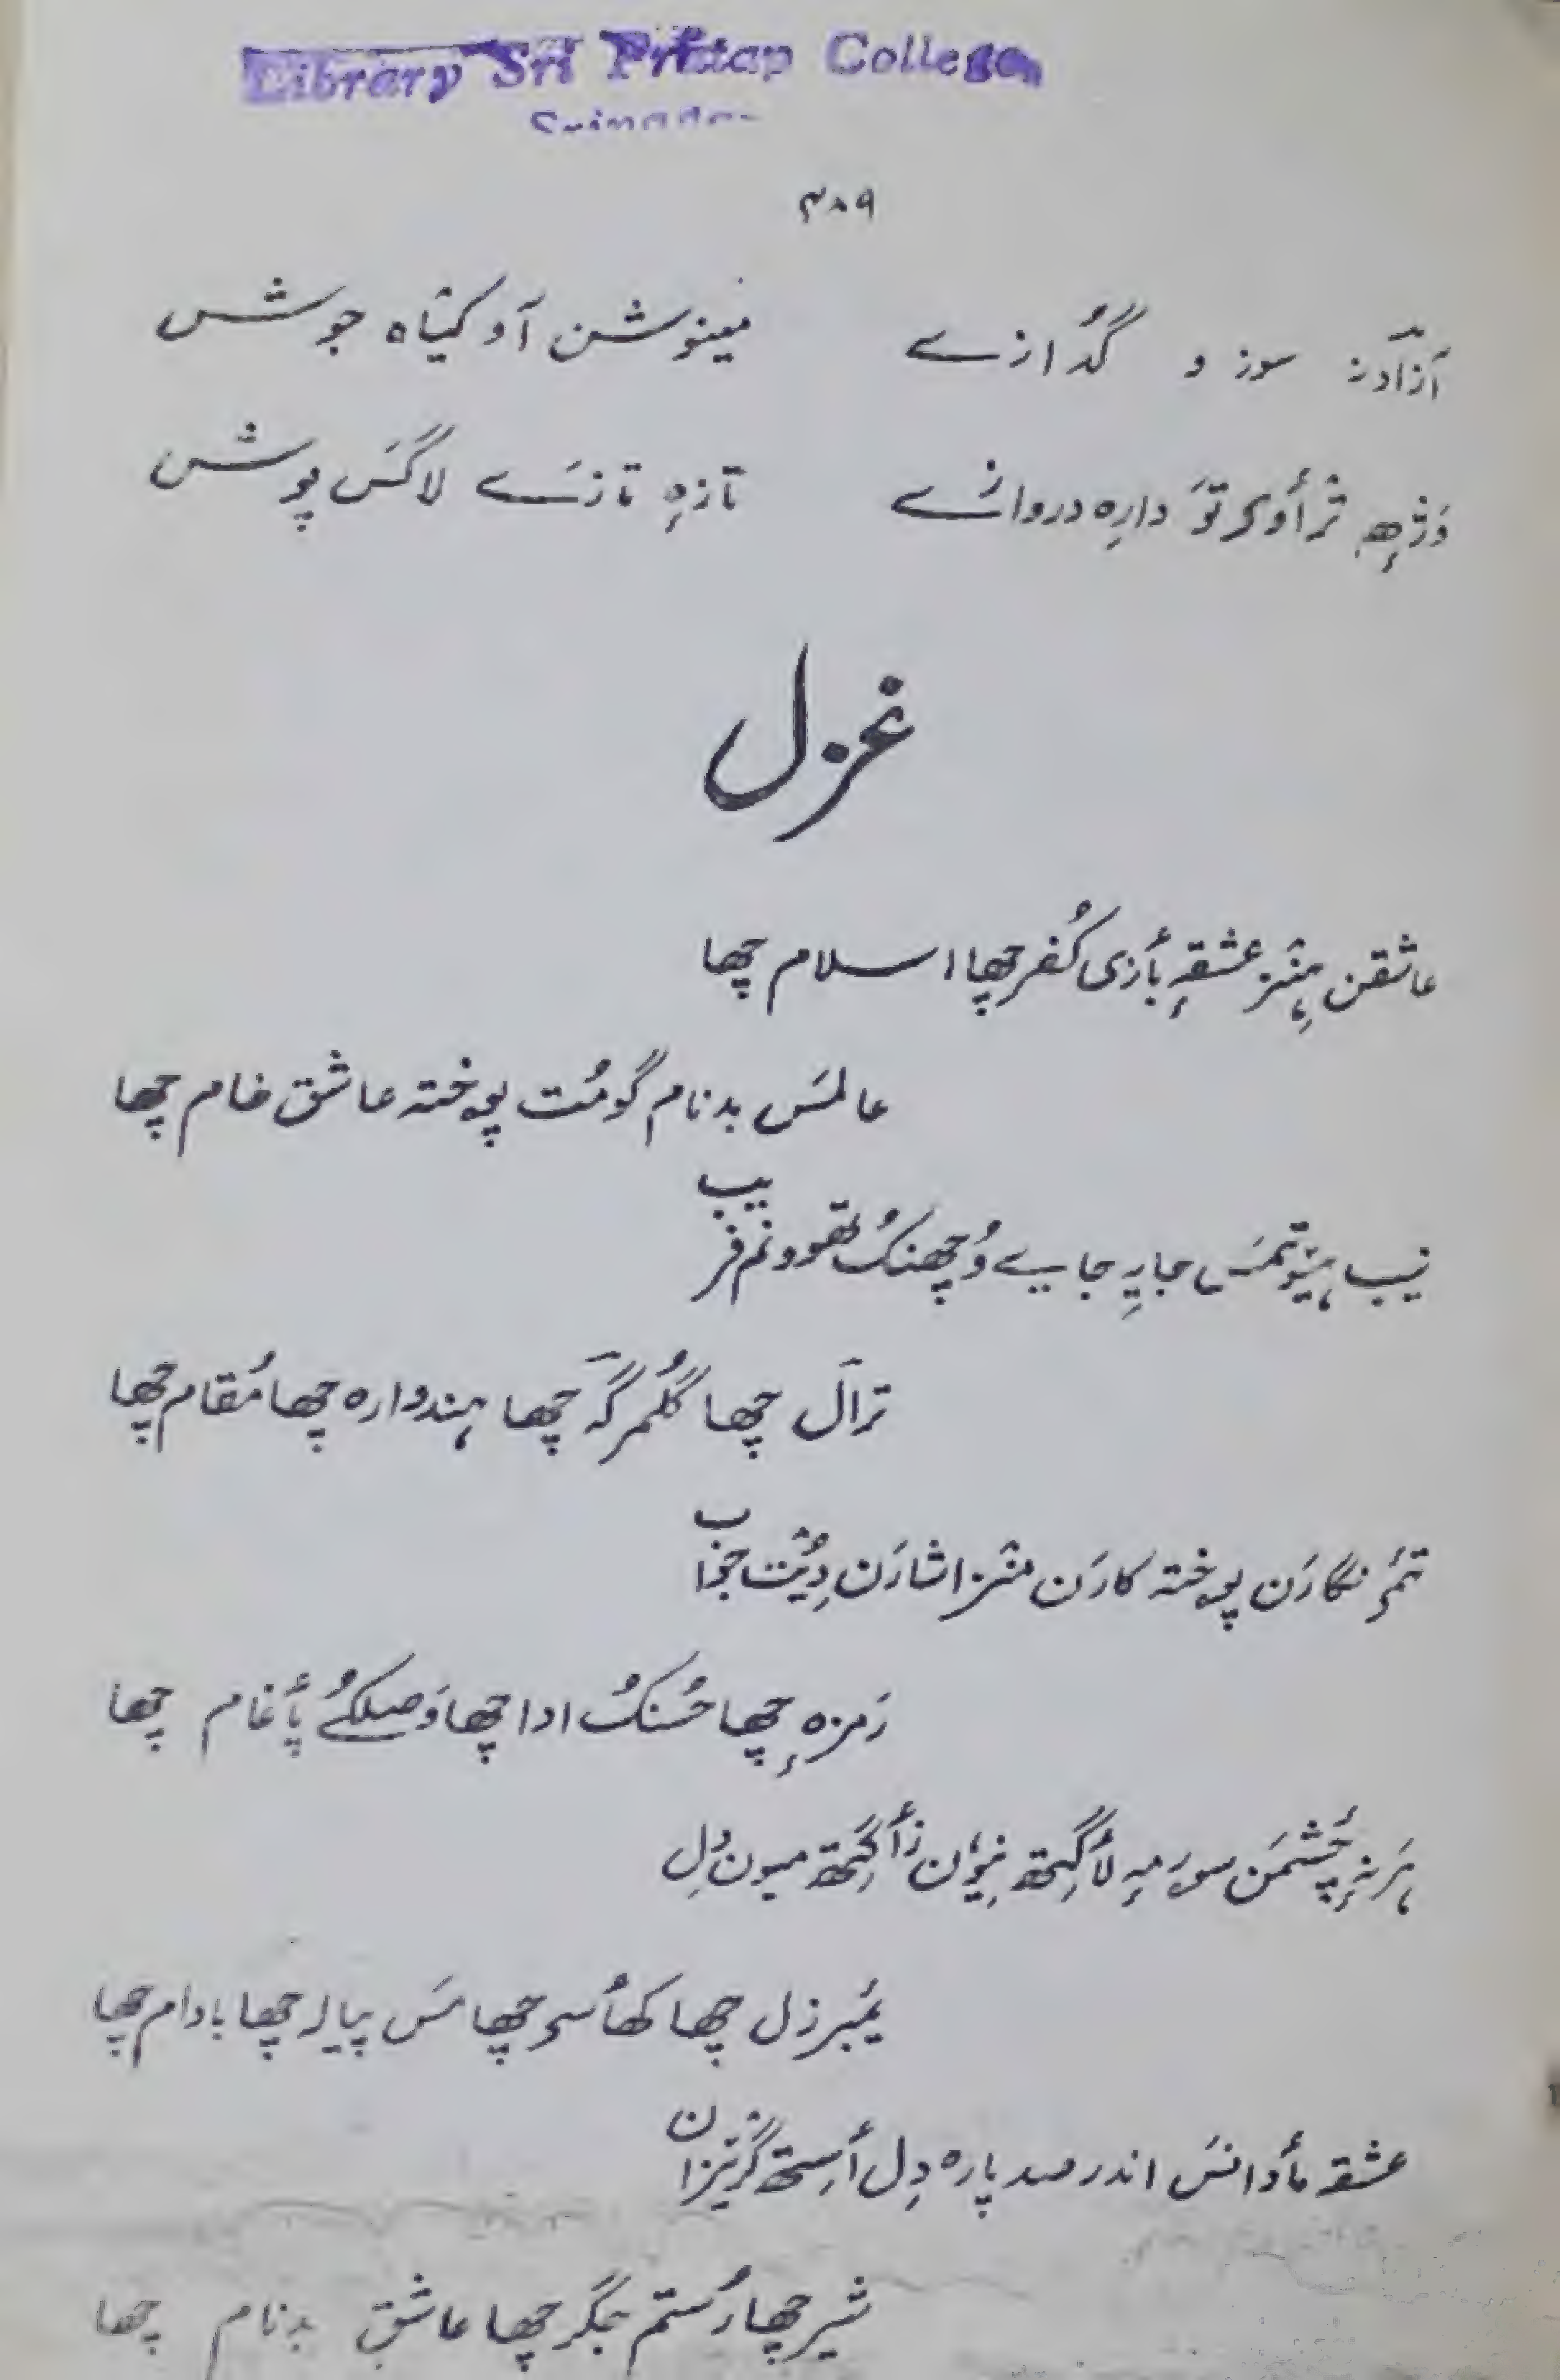 Library Sri Pratap College
Srinagar
۳۸۹
آزادنہ سوز و گُدازے مینوشن آو کیٛاہ جوشس
وَژِھ ترٛأوی تو دارِہ دروازَے تازٕہ تازَے لاگَس پوشس
غزل
عاشقن ہِنٛز عشقہٕ بأزی کُفر چھا اسلام چھا
عالمَس بدنام گومُت پوختہ عاشق خام چھا
نیب ہیوٚتمَس جایِہ جایے وُچھنکُے تھوونم فریب
ترٛال چھا گُلمرگہ چھا ہندوارہ چھا مُقام چھا
تمۍ نگارَن پوختہ کارَن منٛز اشارَن دِیُت جواب
رَمزہٕ چھا حُسنکُ ادا چھا وَصلکُے پأغام چھا
ہَرنہٕ چٔشمَن سورمہٕ لأگِتھ نِیوٗن زأگِتھ میون دِل
یٔمبرزل چھا کھأسۍ چھا مَس پیالہ چھا بادام چھا
عشقہ مأدانَس اندر صد پارہ دِل أسِتھ گُریزان
شیر چھا رُستم جِگر چھا عاشقِ بدنام چھا